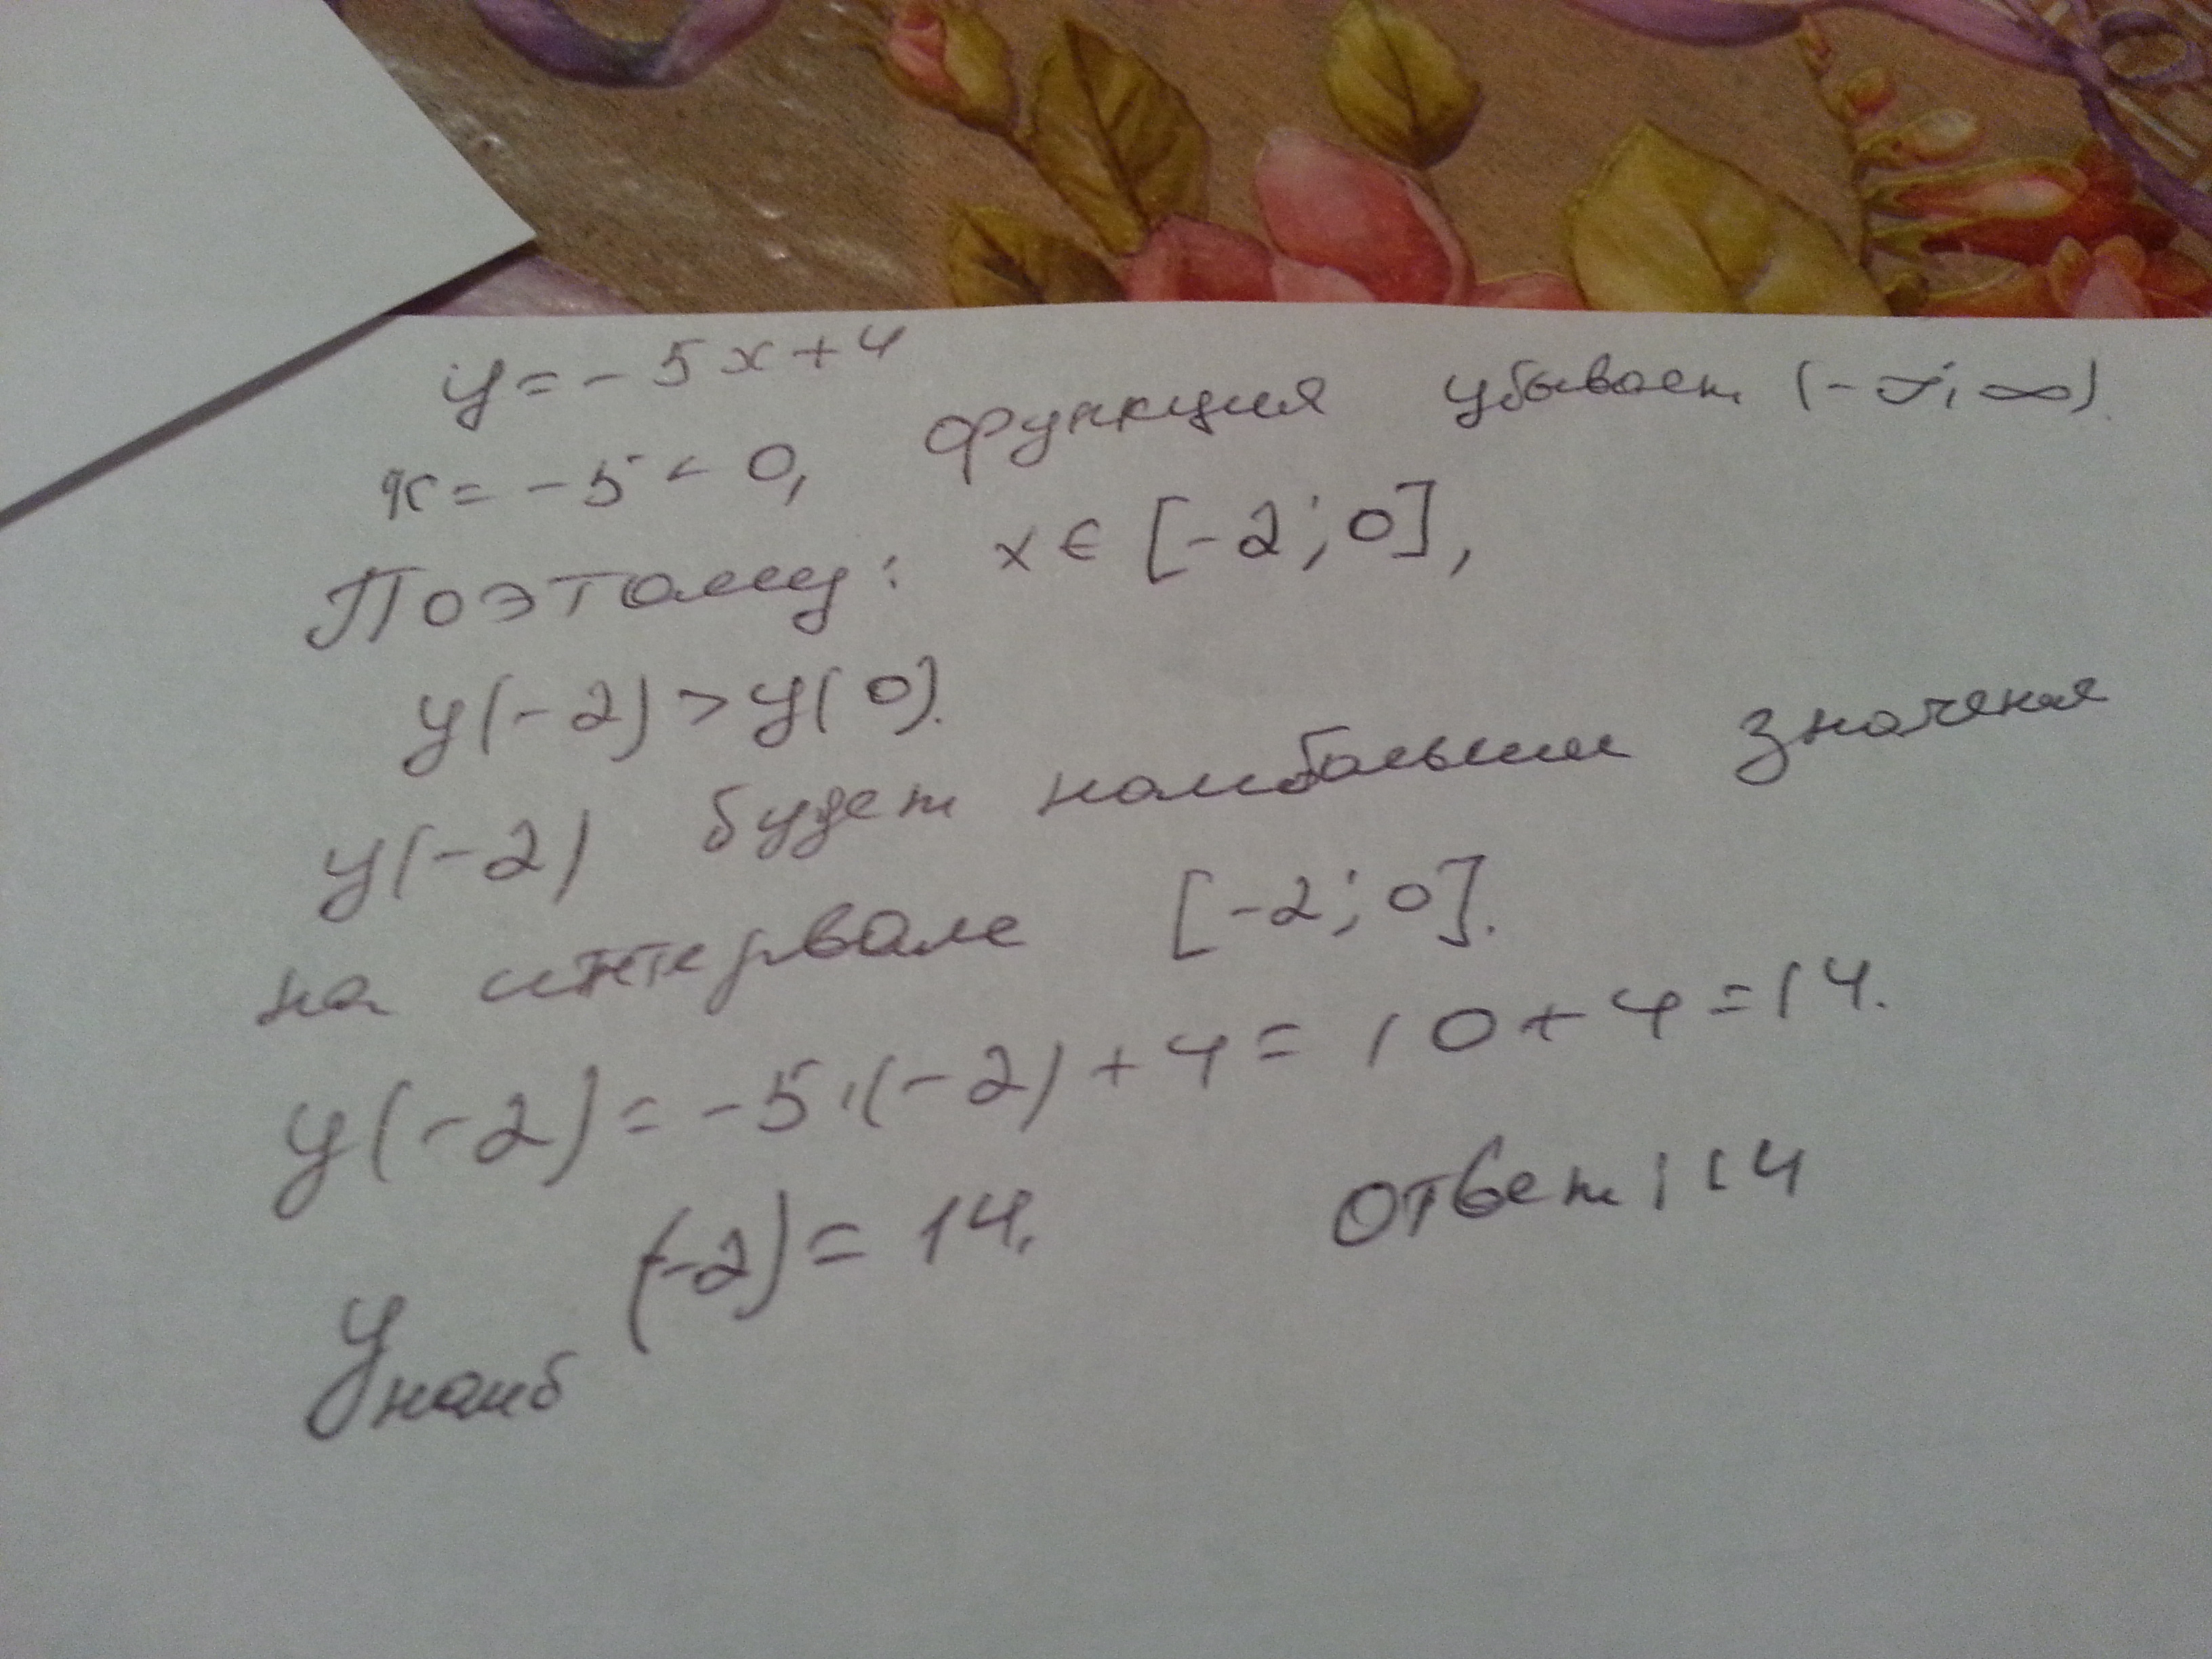 y = - 5x + 4
k = - 5 < 0, функция убывает (-∞; ∞).
Поэтому: x ∈ [-2; 0],
y(-2) > y(0).
y(-2) будет наибольшим значения
на интервале [-2; 0].
y(-2) = -5·(-2) + 4 = 10 + 4 = 14.
y наиб (-2) = 14. Ответ: 14